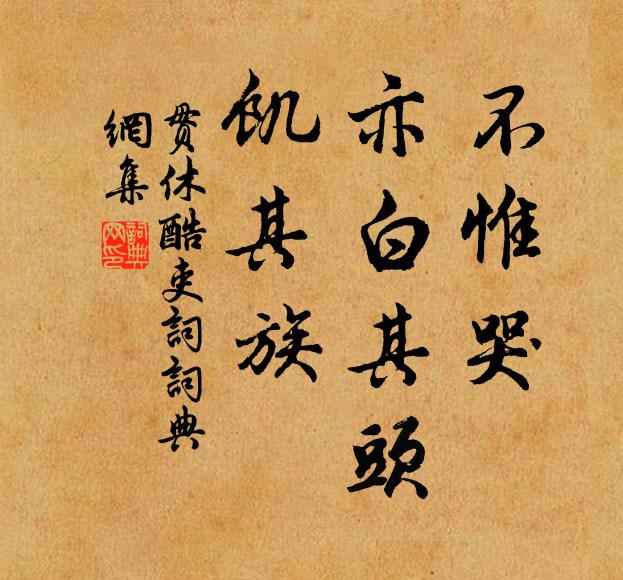 不惟哭
亦白其頭
飢其族
貫休酷吏詞詞典
網集
詞典
網印